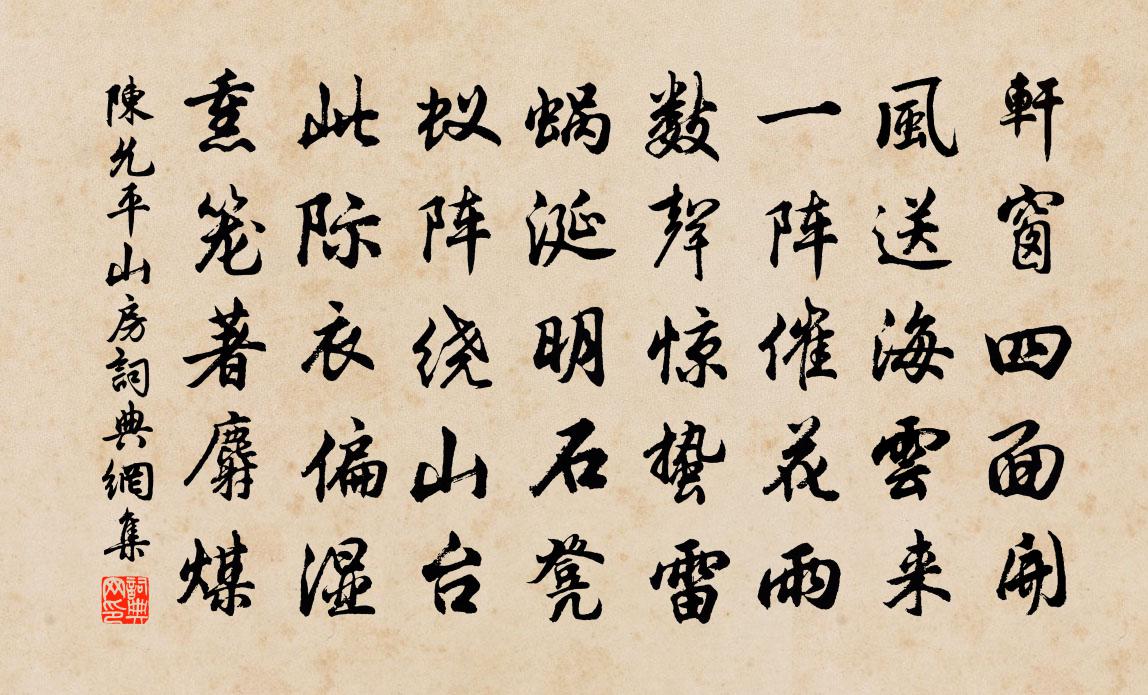 軒窗四面開
風送海雲来
一阵催花雨
数聲惊蛰雷
蜗涎明石凳
蚁阵绕山台
此际衣偏湿
熏笼著麝煤
陳允平山房詞典網集
詞典網印